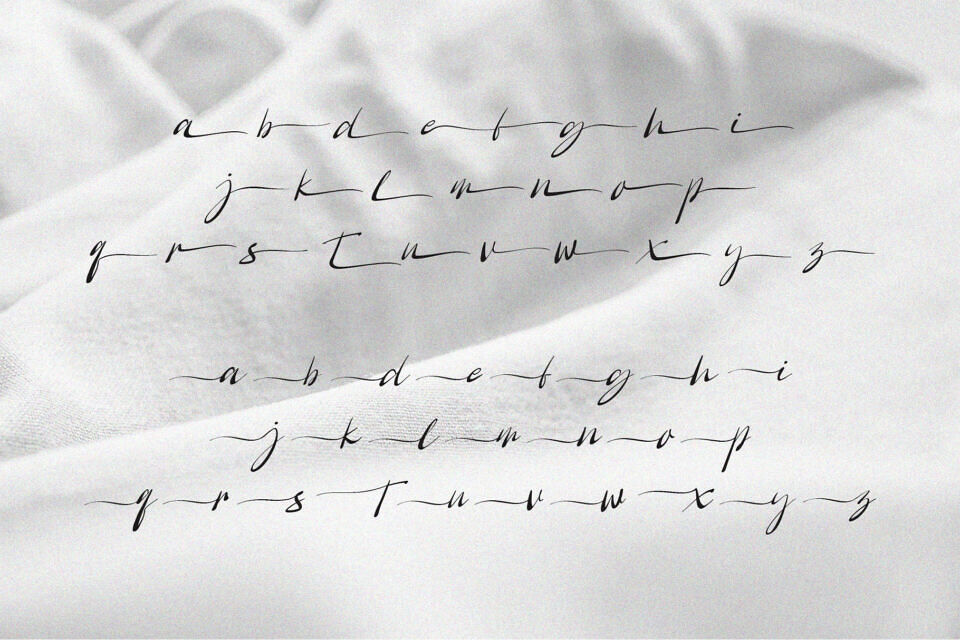 a b d e f g h i
j k l m n o p
q r s t u v w x y z
a b d e f g h i
j k l m n o p
q r s t u v w x y z